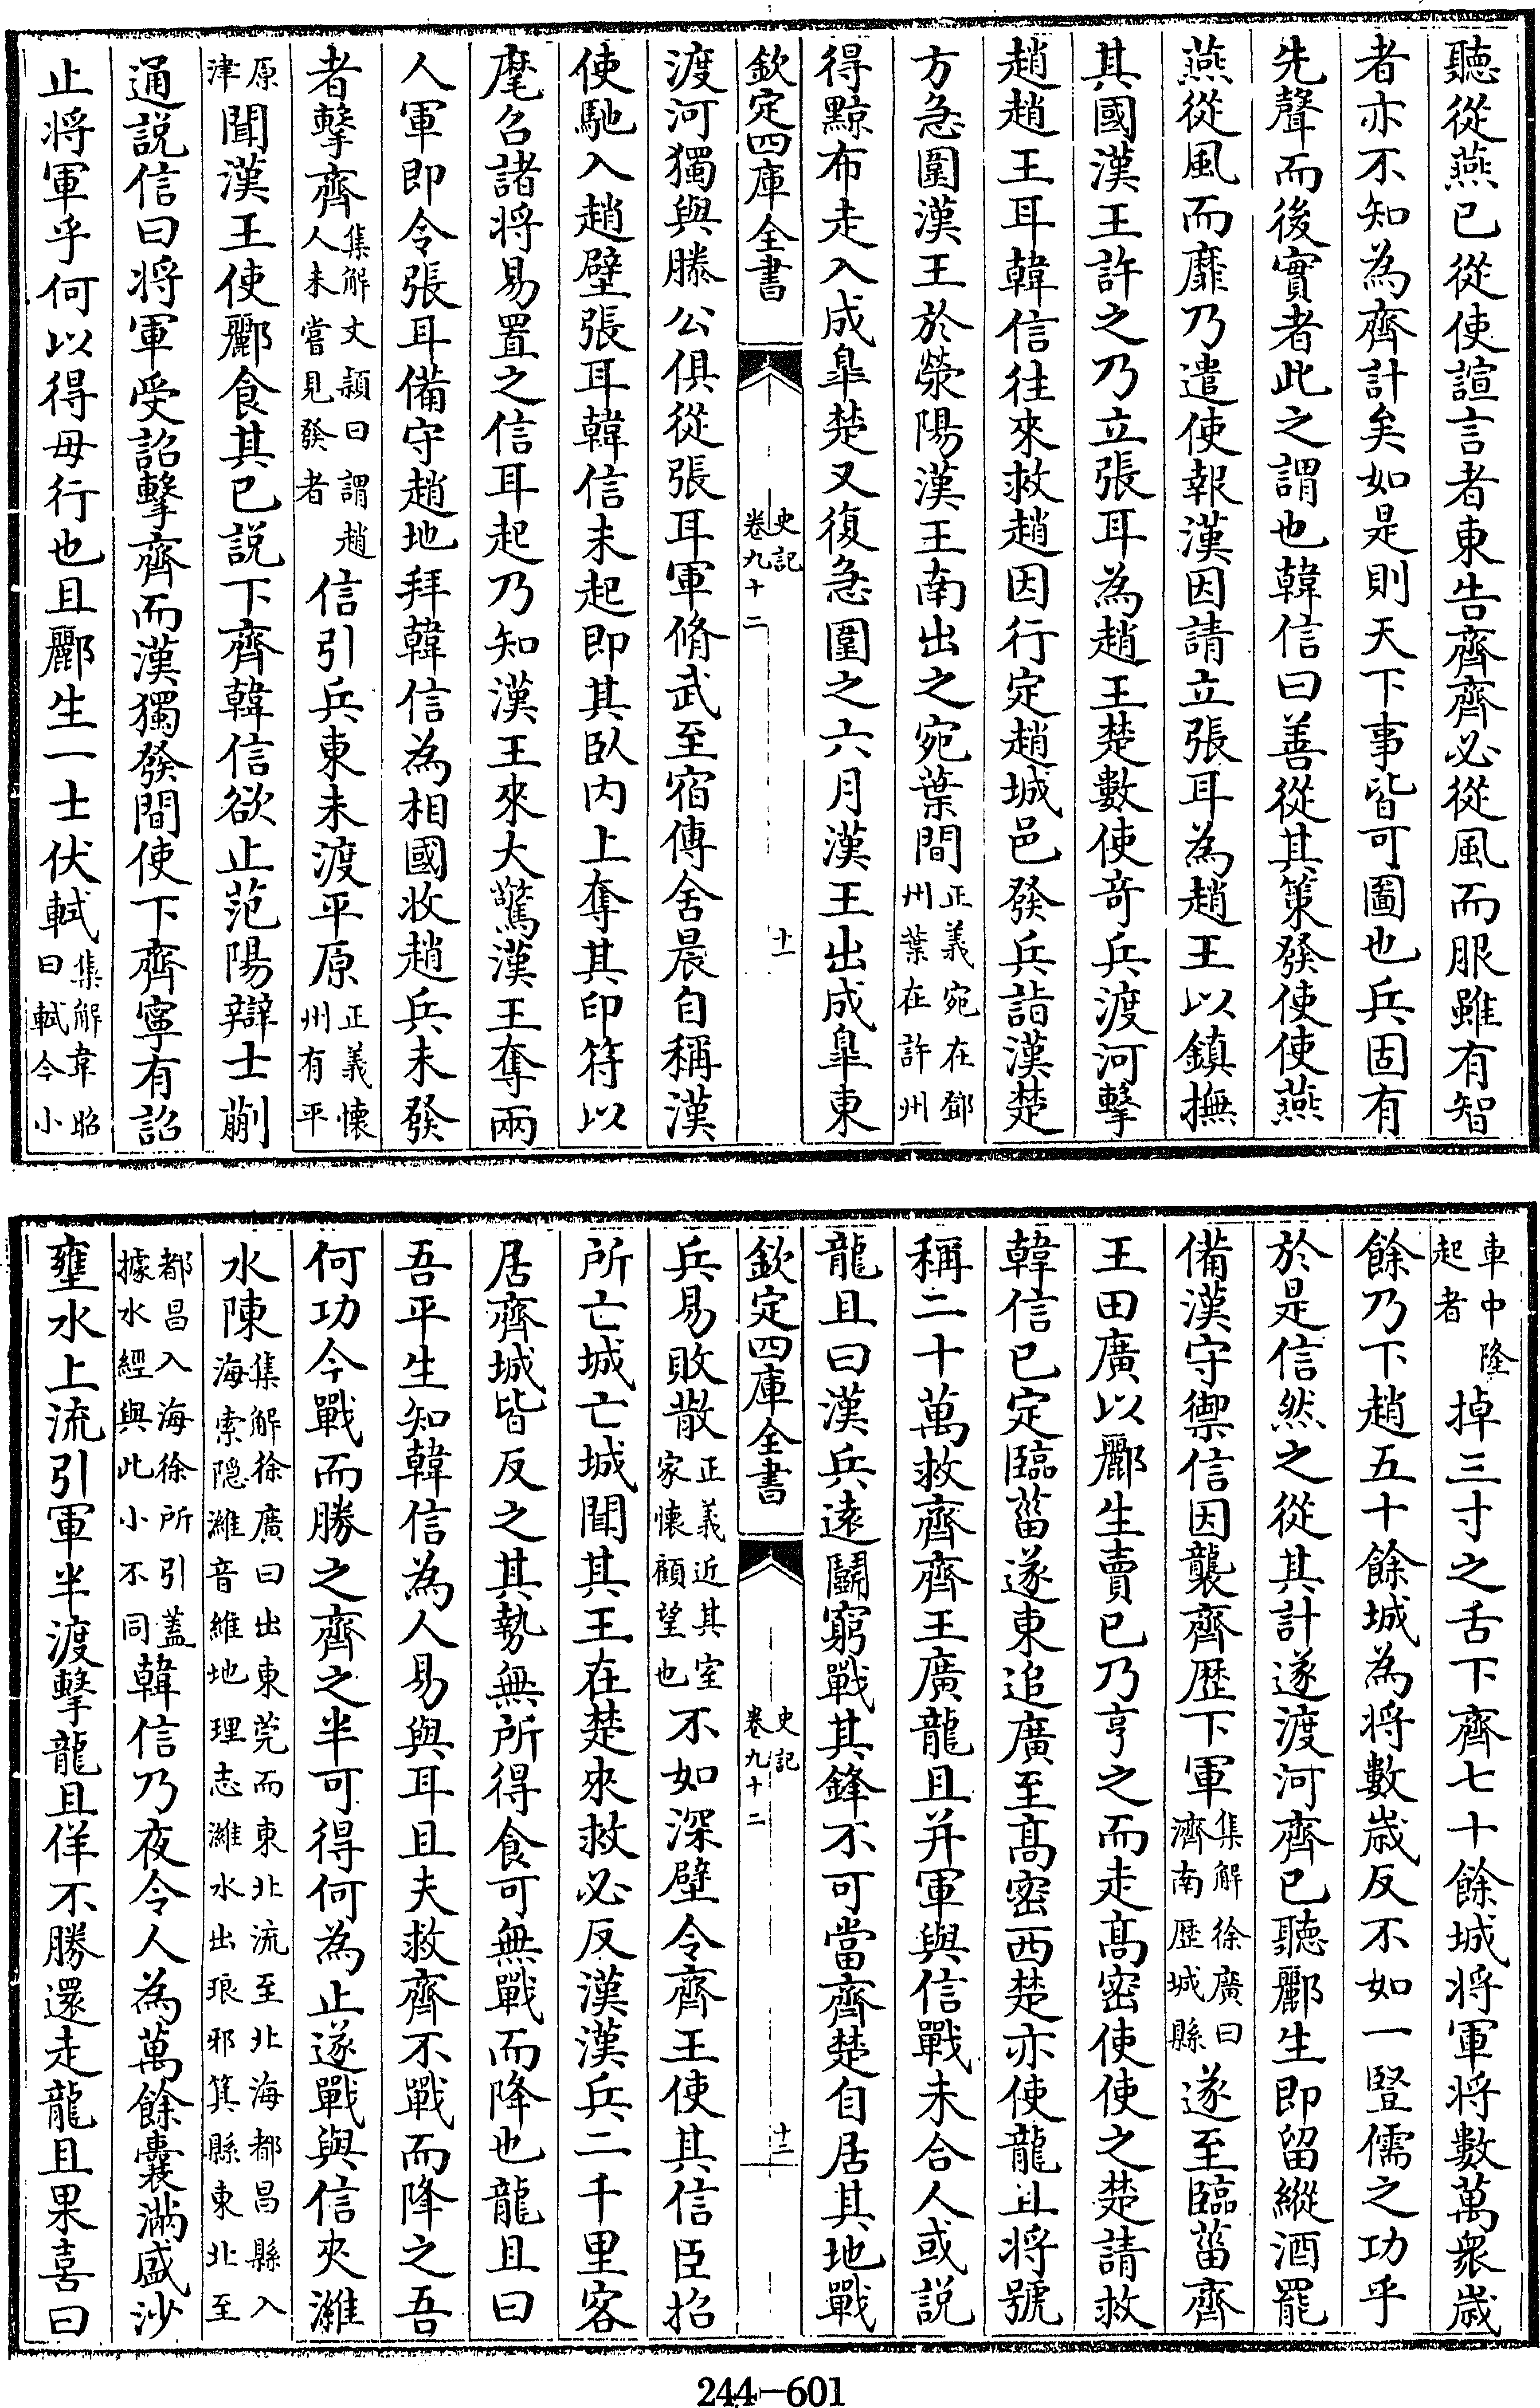 聽從燕已從使諠言者東告齊齊必從風而服雖有智
者亦不知為齊計矣如是則天下事皆可圖也兵固有
先聲而後實者此之謂也韓信曰善從其策發使使燕
燕從風而靡乃遣使報漢因請立張耳為趙王以鎮撫
其國漢王許之乃立張耳為趙王楚數使奇兵渡河擊
趙趙王耳韓信往來救趙因行定趙城邑發兵詣漢楚
方急圍漢王於滎陽漢王南出之宛葉間正義宛在鄧州葉在許州
得黥布走入成臯楚又復急圍之六月漢王出成臯東
欽定四庫全書 史記卷九十二 十一
渡河獨與滕公俱從張耳軍脩武至宿傳舍晨自稱漢
使馳入趙壁張耳韓信未起即其臥内上奪其印符以
麾召諸將易置之信耳起乃知漢王來大驚漢王奪兩
人軍即令張耳備守趙地拜韓信為相國收趙兵未發
者擊齊集解文頴曰謂趙人未嘗見發者信引兵東未渡平原正義懐州有平
原津聞漢王使酈食其已説下齊韓信欲止范陽辯士蒯
通説信曰將軍受詔擊齊而漢獨發間使下齊寧有詔
止將軍乎何以得毋行也且酈生一士伏軾集解韋昭曰軾今小
車中隆起者掉三寸之舌下齊七十餘城將軍將數萬衆歳
餘乃下趙五十餘城為將數歳反不如一豎儒之功乎
於是信然之從其計遂渡河齊已聽酈生即留縱酒罷
備漢守禦信因襲齊歴下軍集解徐廣曰濟南歴城縣遂至臨菑齊
王田廣以酈生賣已乃亨之而走髙密使使之楚請救
韓信已定臨菑遂東追廣至髙密西楚亦使龍且將號
稱二十萬救齊齊王廣龍且并軍與信戰未合人或説
龍且曰漢兵遠鬭窮戰其鋒不可當齊楚自居其地戰
欽定四庫全書 史記卷九十二 十二
兵易敗散正義近其室家懐顧望也不如深壁令齊王使其信臣招
所亡城亡城聞其王在楚來救必反漢漢兵二千里客
居齊城皆反之其勢無所得食可無戰而降也龍且曰
吾平生知韓信為人易與耳且夫救齊不戰而降之吾
何功今戰而勝之齊之半可得何為止遂戰與信夾濰
水陳集解徐廣曰出東莞而東北流至北海都昌縣入海索隠濰音維地理志濰水出琅邪箕縣東北至
都昌入海徐所引蓋據水經與此小不同韓信乃夜令人為萬餘囊滿盛沙
壅水上流引軍半渡擊龍且佯不勝還走龍且果喜曰
244-601